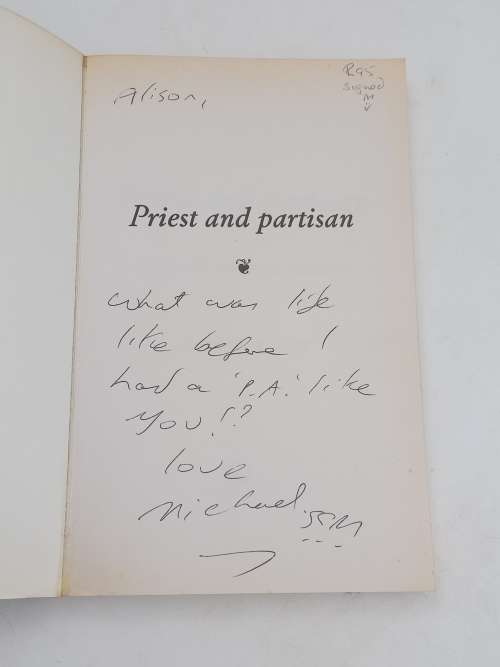 Alison,
R95
signed
Priest and partisan
what was life
like before I
had a 'P.A.' like
You!?
love
Michael. SSM